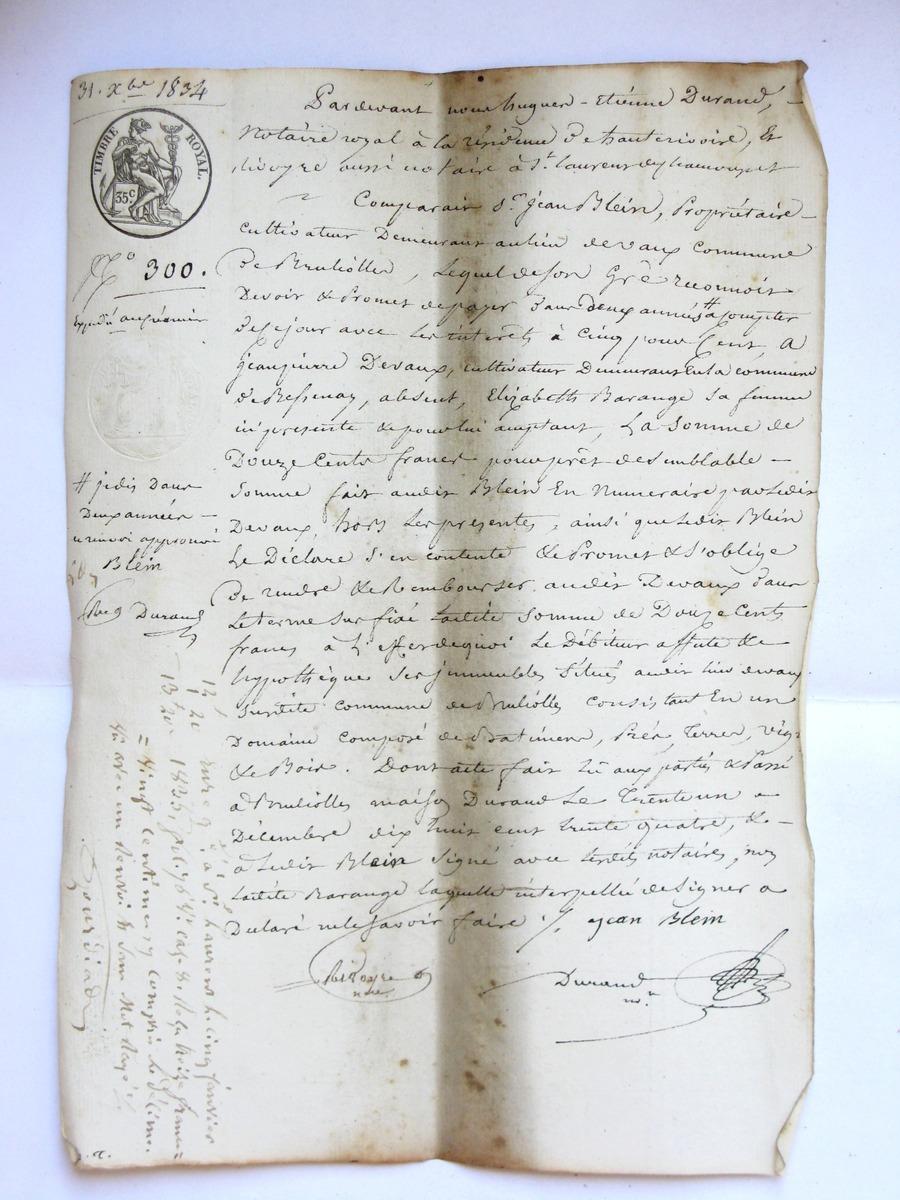 31. Xbre 1834
TIMBRE ROYAL.
35 c
No 300.
Expédié au créancier
# jedis Dans
Deux années —
renvoi approuvé
Blein
Durand
Pardevant nous hugues - Etiénne Durand, —
Notaire royal à la résidence de hauterivoire, Et
aussi notaire à St. Laurent de chamousset
Comparait Sr. jean Blein, Propriétaire —
cultivateur Demeurant au lieu de vaux commune
De Brullioles, lequel de son Gré reconnoit
Devoir & Promet de payer dans deux années # a compter
De ce jour avec les interêts à cinq pour Cent A
jean pierre Devaux, cultivateur Demeurant En la commune
de Bessenay, absent, Elizabeth Barange sa femme
ici presente & pour lui acceptant, La Somme de
Douze Cents francs pour prêt de semblable —
Somme fait audit Blein En Numeraire par ledit
Devaux, hors les presentes, ainsi que ledit Blein
Le Déclare s'en contente & Promet & s'oblige
De rendre & Rembourser audit Devaux dans
Le terme sus fixé ladite Somme de Douze Cents
francs à L'effet de quoi Le Débiteur affecte &
hypothèque Ses jmmeubles Situés audit lieu devaux
Susdite commune de Brullioles consistant En un
Domaine composé de Batiments, Prés, Terres, vignes
& Bois. Dont acte fait lû aux parties & Passé
à Brullioles maison Durand Le Trente un
Décembre dix huit cent trente quatre, & —
à Ledit Blein signé avec lesdits notaires, non
ladite Barange laquelle interpellée de signer a
Declaré ne le savoir faire ./. jean Blein
Durand
nre.
Enre. à St. Laurent le cinq janvier
1835, fol. 78 Vo. case 8. Reçu treize francs
= vingt centimes y compris le décime.